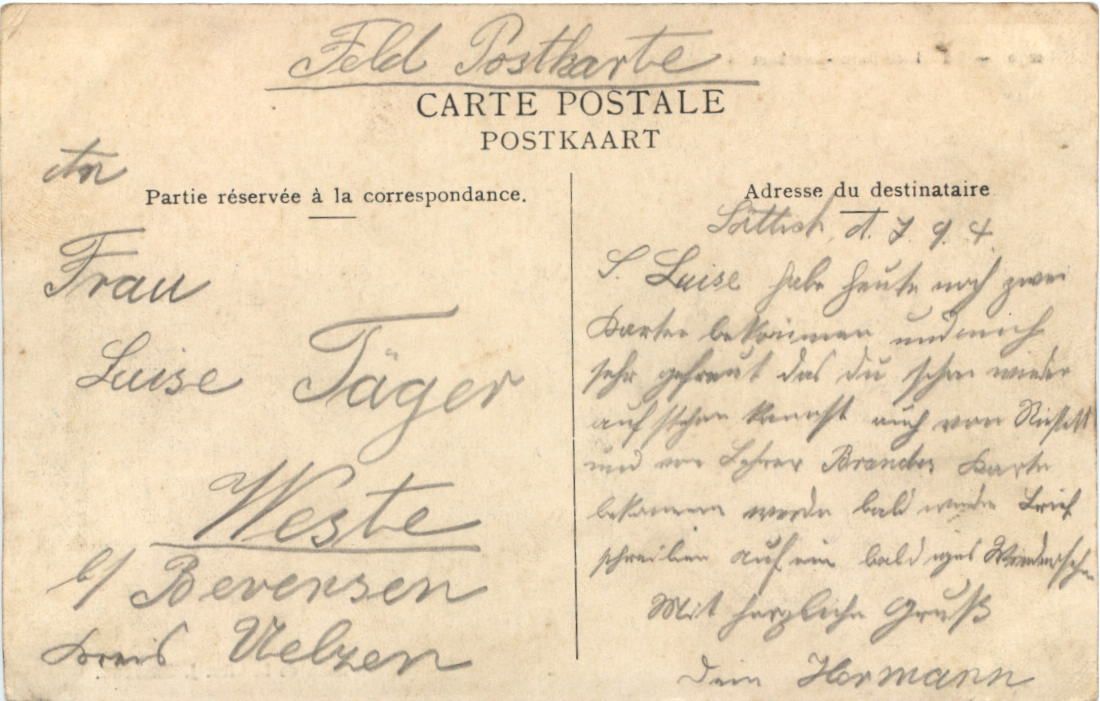 Feld Postkarte
CARTE POSTALE
POSTKAART
An
Partie réservée à la correspondance.
Frau
Luise Täger
Weste
b/ Bevensen
Kreis Uelzen
Adresse du destinataire
Lüttich, d. 7. 9. 4.
L. Luise habe heute noch zwei
Karten bekommen und mich
sehr gefreut das du schon wieder
aufstehen kannst auch von
und von Lehrer Brandes Karte
bekommen werde bald wieder Brief
schreiben auf ein baldiges Wiedersehn
Mit herzliche Gruß
dein Hermann